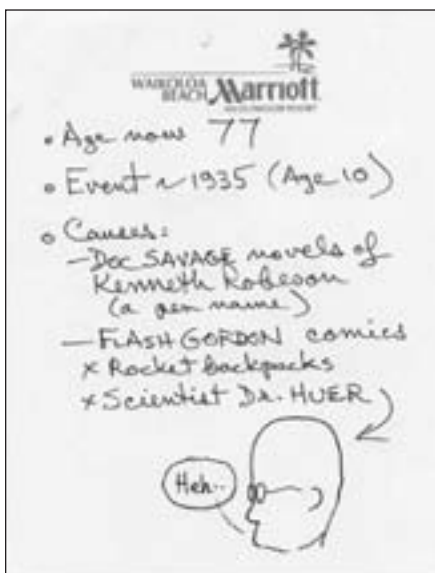 WAIKOLOA
BEACH Marriott
• Age now 77
• Event ~ 1935 (Age 10)
• Causes:
— DOC SAVAGE novels of
Kenneth Robeson
(a pen name)
— FLASH GORDON comics
x Rocket backpacks
x Scientist Dr. HUER
Heh..